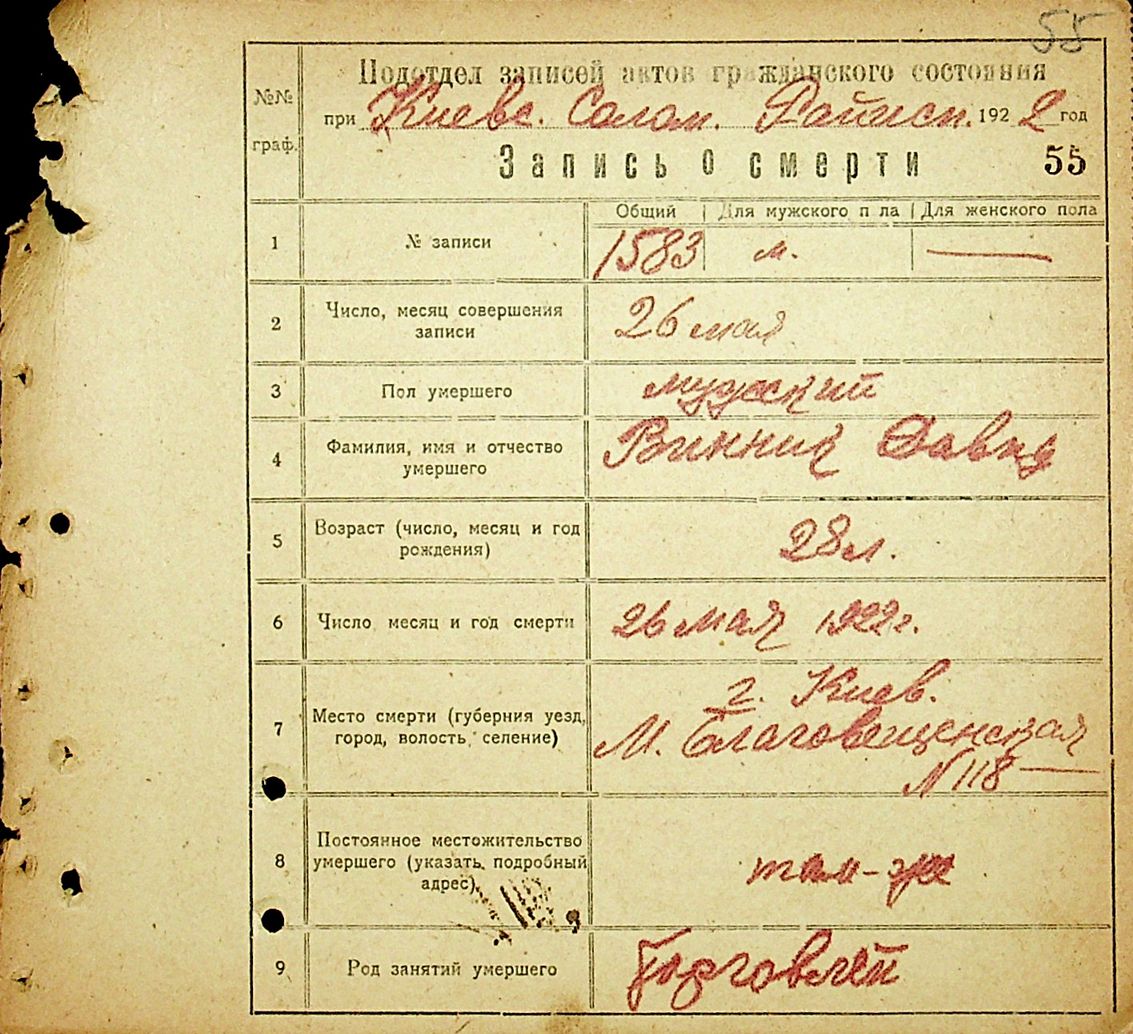 55
Подотдел записей актов гражданского состояния
№№ граф.
при Киевс. Солом. Райисп. 1922 год
Запись о смерти 55
Общий Для мужского п ла Для женского пола
1 № записи 1583 м. —
2 Число, месяц совершения записи 26 мая
3 Пол умершего мужский
4 Фамилия, имя и отчество умершего Винниц Давид
5 Возраст (число, месяц и год рождения) 28 л.
6 Число месяц и год смерти 26 мая 1922 г.
7 Место смерти (губерния уезд, город, волость, селение) г. Киев.
М. Благовещенская
N 118 —
8 Постоянное местожительство умершего (указать подробный адрес) там-же
9 Род занятий умершего Торговлей